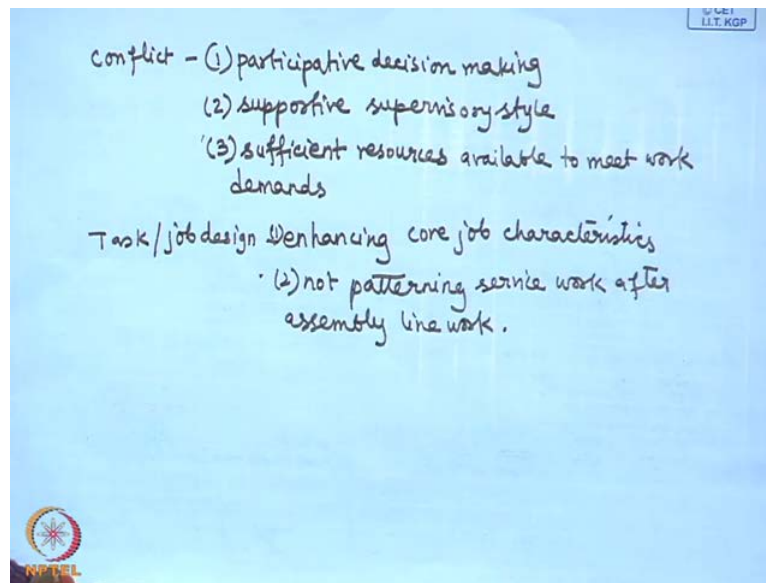 © CET
I.I.T. KGP
conflict - (1) participative decision making
(2) supportive supervisory style
(3) sufficient resources available to meet work
demands
Task/job design (1) enhancing core job characteristics
(2) not patterning service work after
assembly line work.
NPTEL